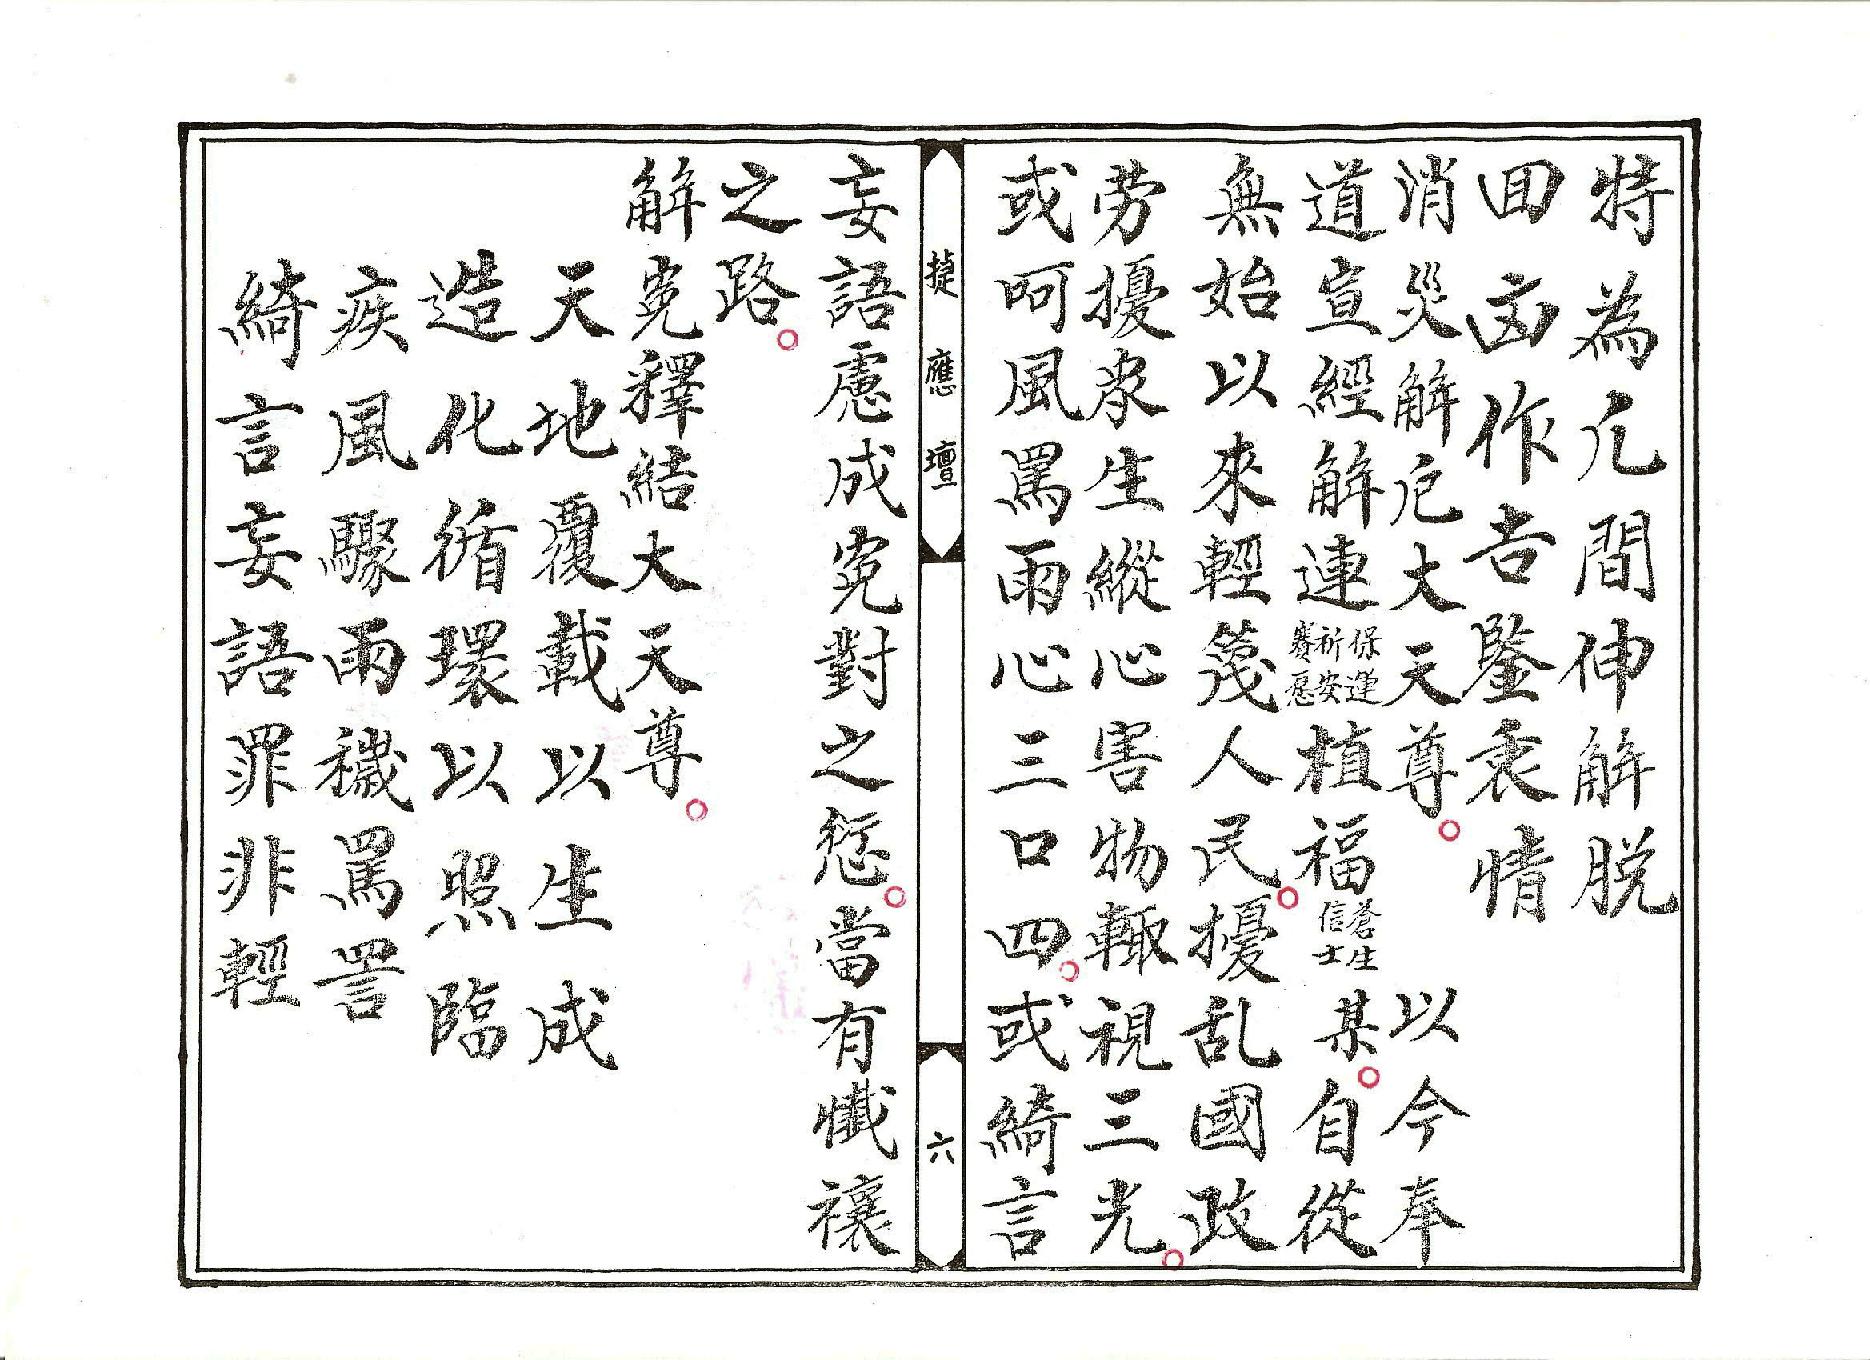 特為凢間伸解脱
囬凶作吉鑒衷情
消災解厄大天尊。 以今奉
道宣經解解連 保運 祈安 賽愿 植福 蒼生 信士 某。自從
無始以來輕篾人民。擾乱國政
劳擾衆生縱心害物輙視三光。
或呵風罵雨心三口四。或綺言
捷應壇
六
妄語慮成寃對之愆。當有懴禳
之路。
解寃釋結大天尊。
天地覆載以生成
造化循環以照臨
疾風驟雨穢罵詈
綺言妄語罪非輕